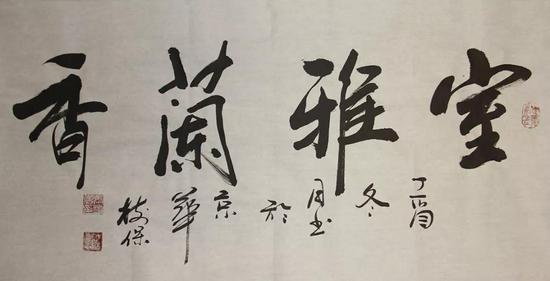 室雅蘭香
丁酉冬月书於京華保